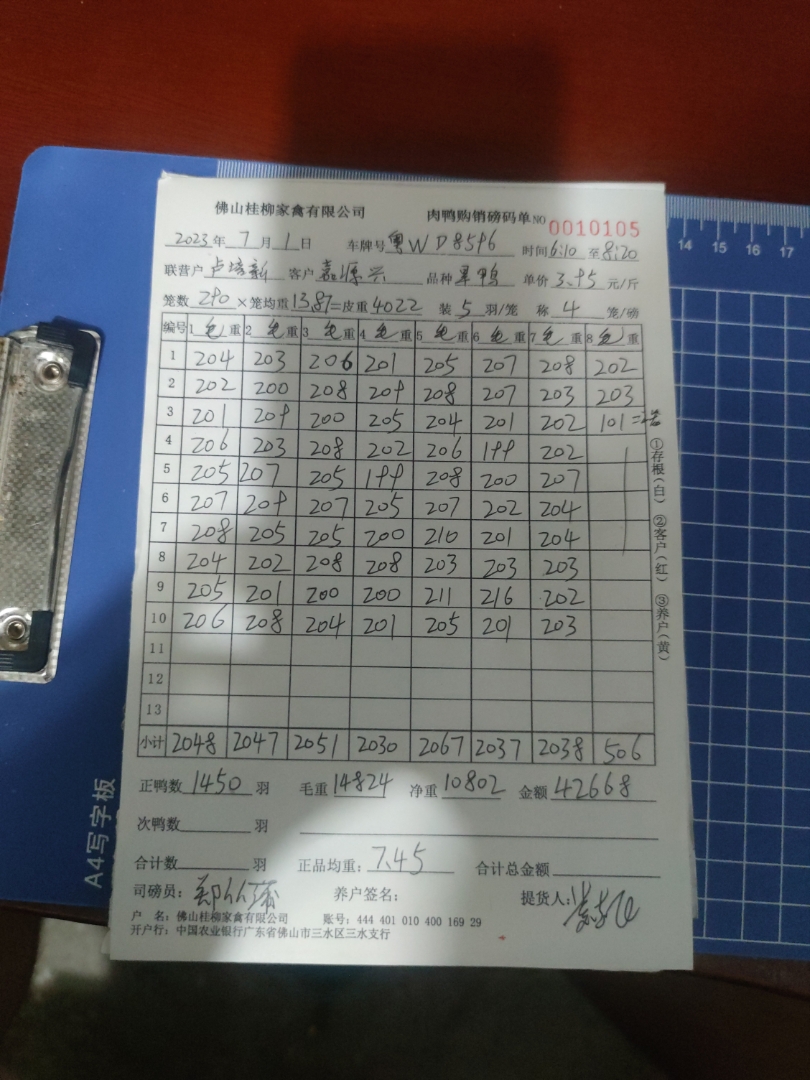 佛山桂柳家禽有限公司 肉鸭购销磅码单 NO 0010105
2023年 7月 1日 车牌号 粤WD8596 时间 6:10 至 8:20
联营户 卢培新 客户 嘉源兴 品种 单价 3.95 元/斤
笼数 290 × 笼均重 13.87 = 皮重 4022 装 5 羽/笼 称 4 笼/磅
编号 1 毛重 2 毛重 3 毛重 4 毛重 5 毛重 6 毛重 7 毛重 8 毛重
1 204 203 206 201 205 207 208 202
2 202 200 208 209 208 207 203 203
3 201 209 200 205 204 201 202 101=2笼
4 206 203 208 202 206 199 202
5 205 207 205 199 208 200 207
6 207 209 207 205 207 202 204
7 208 205 205 200 210 201 204
8 204 202 208 208 203 203 203
9 205 201 200 200 211 216 202
10 206 208 204 201 205 201 203
11
12
13
小计 2048 2047 2051 2030 2067 2037 2038 506
正鸭数 1450 羽 毛重 14824 净重 10802 金额 42668
次鸭数 羽
合计数 羽 正品均重: 7.45 合计总金额
司磅员: 养户签名: 提货人:
户 名: 佛山桂柳家禽有限公司 账号: 444 401 010 400 169 29
开户行: 中国农业银行广东省佛山市三水区三水支行
①存根(白) ②客户(红) ③养户(黄)
A4写字板
14 15 16 17